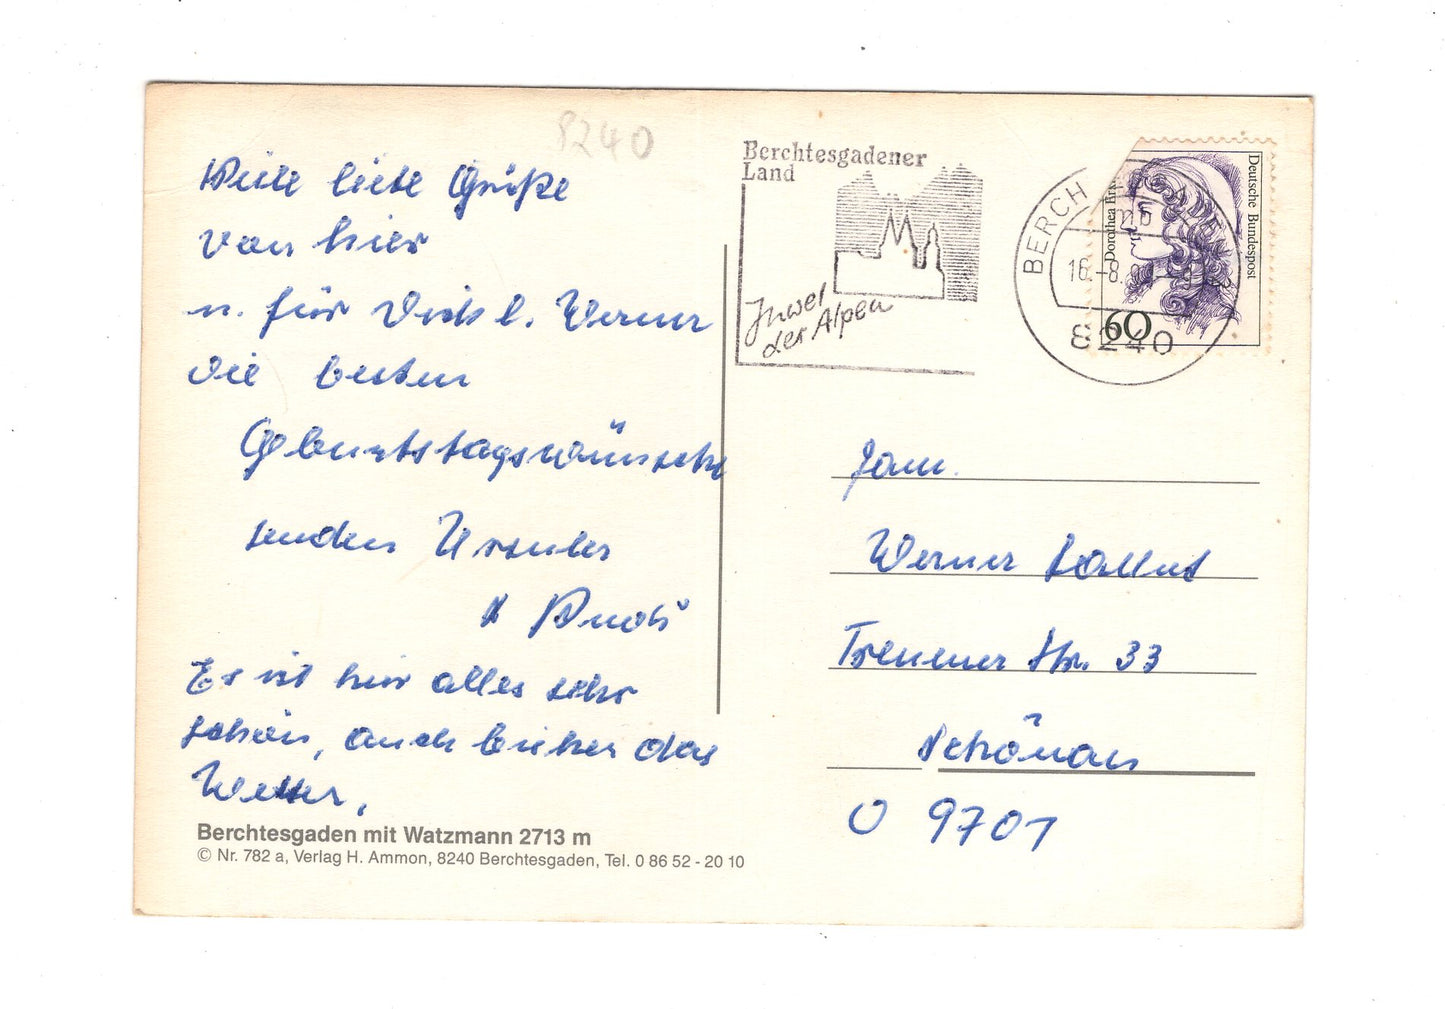 8240
Viele liebe Grüße
von hier
u. für Dich l. Werner
die besten
Geburtstagswünsche
senden Ursula
u. Rudi
Es ist hier alles sehr
schön, auch bisher das
Wetter.
Berchtesgaden mit Watzmann 2713 m
© Nr. 782 a, Verlag H. Ammon, 8240 Berchtesgaden, Tel. 0 86 52 - 20 10
Berchtesgadener
Land
Juwel
der Alpen
BERCH
mb
16.-8.
8240
Deutsche Bundespost
Dorothea Erx
60
Fam.
Werner
Treuener Str. 33
Schönau
O 9701